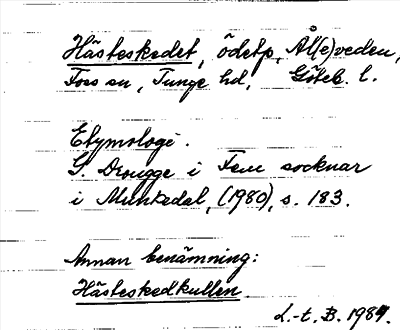 Hästeskedet, ödetp, Ål(e)veden,
Foss sn, Tunge hd, Göteb. l.
Etymologi.
G. Drougge i Fem socknar
i Munkedal, (1980), s. 183.
Annan benämning:
Hästeskedkullen
L.-t. B. 1984.